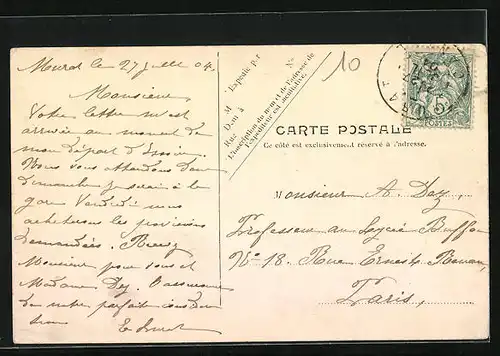 Murat le 27 Juillet 04.
Monsieur
Votre lettre m'est
arrivée au moment de
mon départ d'
Nous vous attendons donc
dimanche je serai à la
gare Vendredi nous
achèterons les provisions
demandées. Recevez
Monsieur pour vous et
Madame Dez l'assurance
de notre parfaite
E
M
Expédié par
Demt à
Rue
No
L'inscription du nom et de l'adresse de
l'Expéditeur est facultative.
10
MURAT
POSTES
CARTE POSTALE
Ce côté est exclusivement réservé à l'adresse.
Monsieur A. Dez,
Professeur au Lycée Buffon
No 18. Rue Ernest Renan,
Paris,